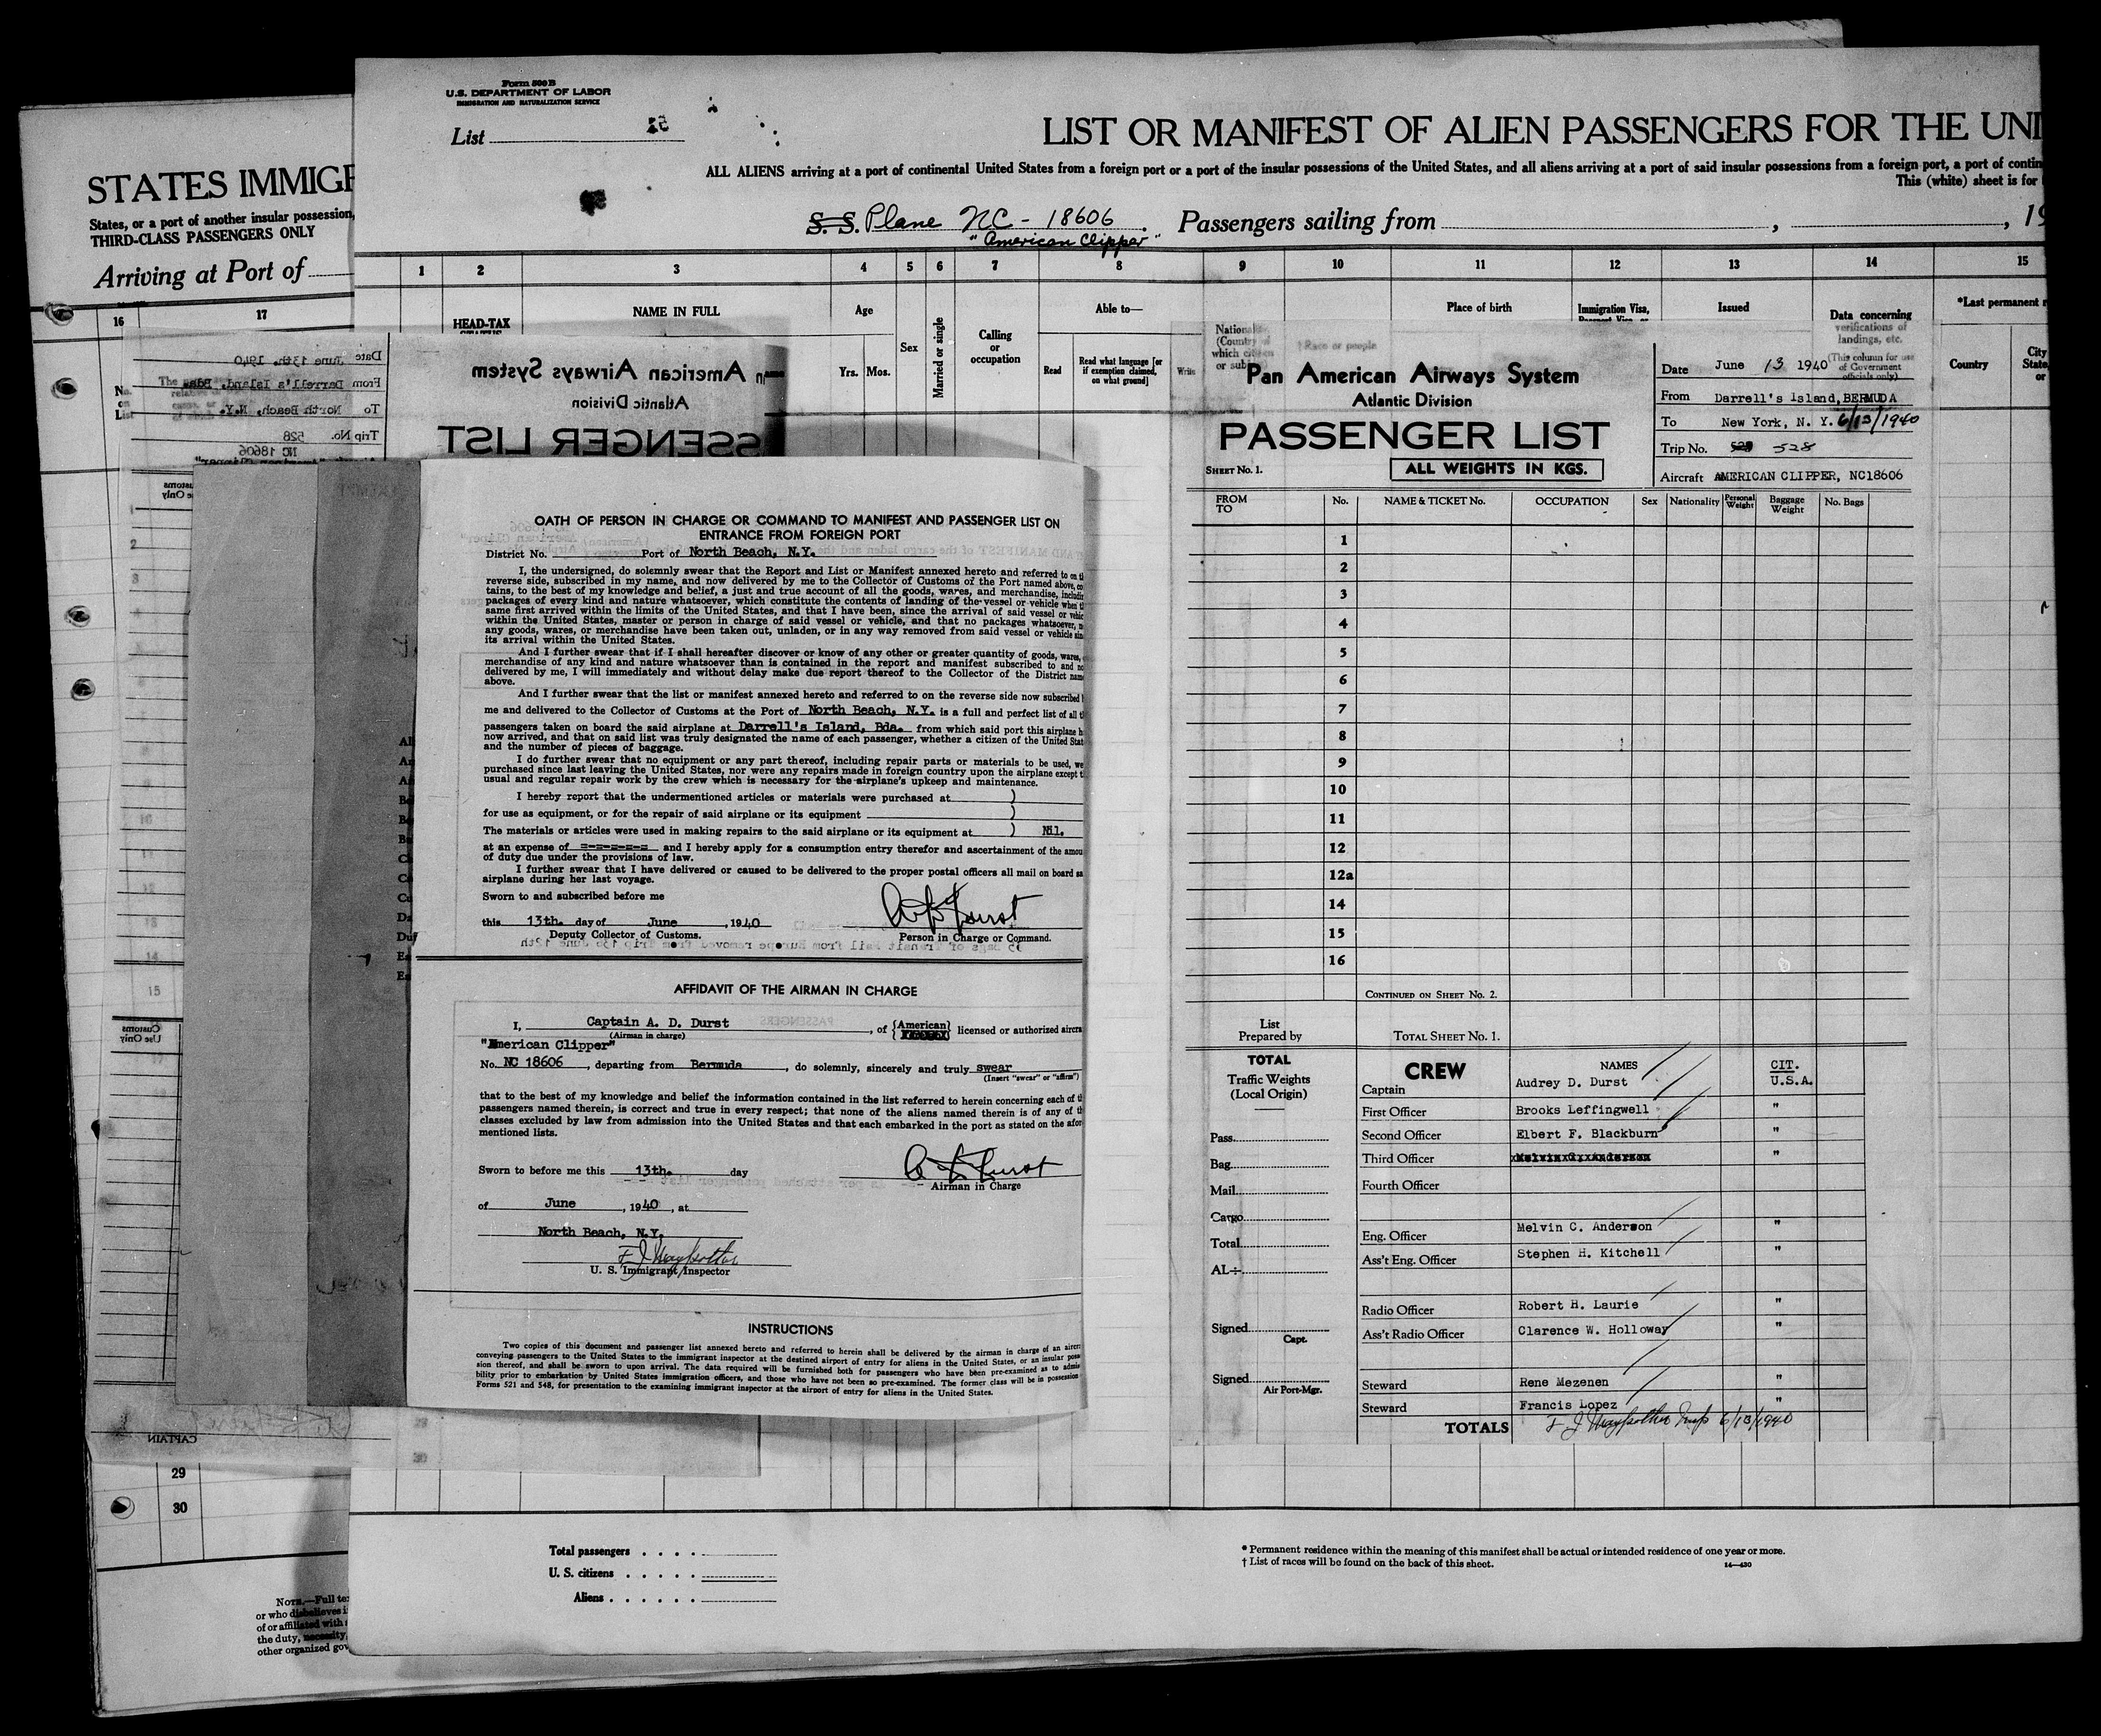 STATES IMMIGR
States, or a port of another insular possession,
THIRD-CLASS PASSENGERS ONLY
Arriving at Port of
16 17
No. on List
29
30
CAPTAIN
NOTE.—Full te
or who disbelieves i
of or affiliated with
the duty, necessity,
other organized gov
Form 500 B
U.S. DEPARTMENT OF LABOR
IMMIGRATION AND NATURALIZATION SERVICE
List 52
LIST OR MANIFEST OF ALIEN PASSENGERS FOR THE UNI
ALL ALIENS arriving at a port of continental United States from a foreign port or a port of the insular possessions of the United States, and all aliens arriving at a port of said insular possessions from a foreign port, a port of contin
This (white) sheet is for
S. S. Plane NC-18606 Passengers sailing from , , 19
"American Clipper"
1 2 3 4 5 6 7 8 9 10 11 12 13 14 15
HEAD-TAX
NAME IN FULL
Age
Yrs. Mos.
Sex
Married or single
Calling
or
occupation
Able to—
Read
Read what language [or
if exemption claimed,
on what ground]
Write
(Country of
which citizen
† Race or people
Place of birth
Immigration Visa,
Issued
Data concerning
verifications of
landings, etc.
(This column for use
of Government
officials only)
*Last permanent r
Country
City
State,
or
Date June 13th. 1940
From Darrell's Island, Bda.
To North Beach, N.Y.
Trip No. 528
NC 18606
an American Airways System
Atlantic Division
SSENGER LIST
OATH OF PERSON IN CHARGE OR COMMAND TO MANIFEST AND PASSENGER LIST ON
ENTRANCE FROM FOREIGN PORT
District No. Port of North Beach, N.Y.
I, the undersigned, do solemnly swear that the Report and List or Manifest annexed hereto and referred to on t
reverse side, subscribed in my name, and now delivered by me to the Collector of Customs of the Port named above, co
tains, to the best of my knowledge and belief, a just and true account of all the goods, wares, and merchandise, includin
packages of every kind and nature whatsoever, which constitute the contents of landing of the vessel or vehicle when t
same first arrived within the limits of the United States, and that I have been, since the arrival of said vessel or vehic
within the United States, master or person in charge of said vessel or vehicle, and that no packages whatsoever, n
any goods, wares, or merchandise have been taken out, unladen, or in any way removed from said vessel or vehicle sin
its arrival within the United States.
And I further swear that if I shall hereafter discover or know of any other or greater quantity of goods, wares,
merchandise of any kind and nature whatsoever than is contained in the report and manifest subscribed to and no
delivered by me, I will immediately and without delay make due report thereof to the Collector of the District nam
above.
And I further swear that the list or manifest annexed hereto and referred to on the reverse side now subscribed
me and delivered to the Collector of Customs at the Port of North Beach, N.Y. is a full and perfect list of all t
passengers taken on board the said airplane at Darrell's Island, Bda. from which said port this airplane h
now arrived, and that on said list was truly designated the name of each passenger, whether a citizen of the United Stat
and the number of pieces of baggage.
I do further swear that no equipment or any part thereof, including repair parts or materials to be used, we
purchased since last leaving the United States, nor were any repairs made in foreign country upon the airplane except t
usual and regular repair work by the crew which is necessary for the airplane's upkeep and maintenance.
I hereby report that the undermentioned articles or materials were purchased at )
for use as equipment, or for the repair of said airplane or its equipment )
The materials or articles were used in making repairs to the said airplane or its equipment at ) Nil.
at an expense of =-=-=-=-= and I hereby apply for a consumption entry therefor and ascertainment of the amou
of duty due under the provisions of law.
I further swear that I have delivered or caused to be delivered to the proper postal officers all mail on board sa
airplane during her last voyage.
Sworn to and subscribed before me
this 13th. day of June , 1940 A D Durst
Deputy Collector of Customs. Person in Charge or Command.
AFFIDAVIT OF THE AIRMAN IN CHARGE
I, Captain A. D. Durst , of {American} licensed or authorized aircra
(Airman in charge)
"American Clipper"
No. NC 18606 , departing from Bermuda , do solemnly, sincerely and truly swear
(Insert "swear" or "affirm")
that to the best of my knowledge and belief the information contained in the list referred to herein concerning each of t
passengers named therein, is correct and true in every respect; that none of the aliens named therein is of any of th
classes excluded by law from admission into the United States and that each embarked in the port as stated on the afor
mentioned lists.
Sworn to before me this 13th. day A D Durst
Airman in Charge
of June , 1940 , at
North Beach, N.Y.
U. S. Immigrant Inspector
INSTRUCTIONS
Two copies of this document and passenger list annexed hereto and referred to herein shall be delivered by the airman in charge of an aircra
conveying passengers to the United States to the immigrant inspector at the destined airport of entry for aliens in the United States, or an insular poss
sion thereof, and shall be sworn to upon arrival. The data required will be furnished both for passengers who have been pre-examined as to admis
bility prior to embarkation by United States immigration officers, and those who have not been so pre-examined. The former class will be in possession
Forms 521 and 548, for presentation to the examining immigrant inspector at the airport of entry for aliens in the United States.
Pan American Airways System
Atlantic Division
PASSENGER LIST
SHEET No. 1. ALL WEIGHTS IN KGS.
Date June 13 1940
From Darrell's Island, BERMUDA
To New York, N. Y. 6/13/1940
Trip No. 528
Aircraft AMERICAN CLIPPER, NC18606
FROM TO No. NAME & TICKET No. OCCUPATION Sex Nationality Personal Weight Baggage Weight No. Bags
1
2
3
4
5
6
7
8
9
10
11
12
12a
14
15
16
CONTINUED ON SHEET No. 2.
List
Prepared by TOTAL SHEET No. 1.
TOTAL
Traffic Weights
(Local Origin)
Pass.
Bag.
Mail
Cargo
Total
AL÷
Signed
Capt.
Signed
Air Port-Mgr.
CREW NAMES CIT.
Captain Audrey D. Durst U.S.A.
First Officer Brooks Leffingwell "
Second Officer Elbert F. Blackburn "
Third Officer "
Fourth Officer
Eng. Officer Melvin C. Anderson "
Ass't Eng. Officer Stephen H. Kitchell "
Radio Officer Robert H. Laurie "
Ass't Radio Officer Clarence W. Holloway "
Steward Rene Mezenen "
Steward Francis Lopez "
TOTALS 6/13/1940
Total passengers
U. S. citizens
Aliens
* Permanent residence within the meaning of this manifest shall be actual or intended residence of one year or more.
† List of races will be found on the back of this sheet.
14—430